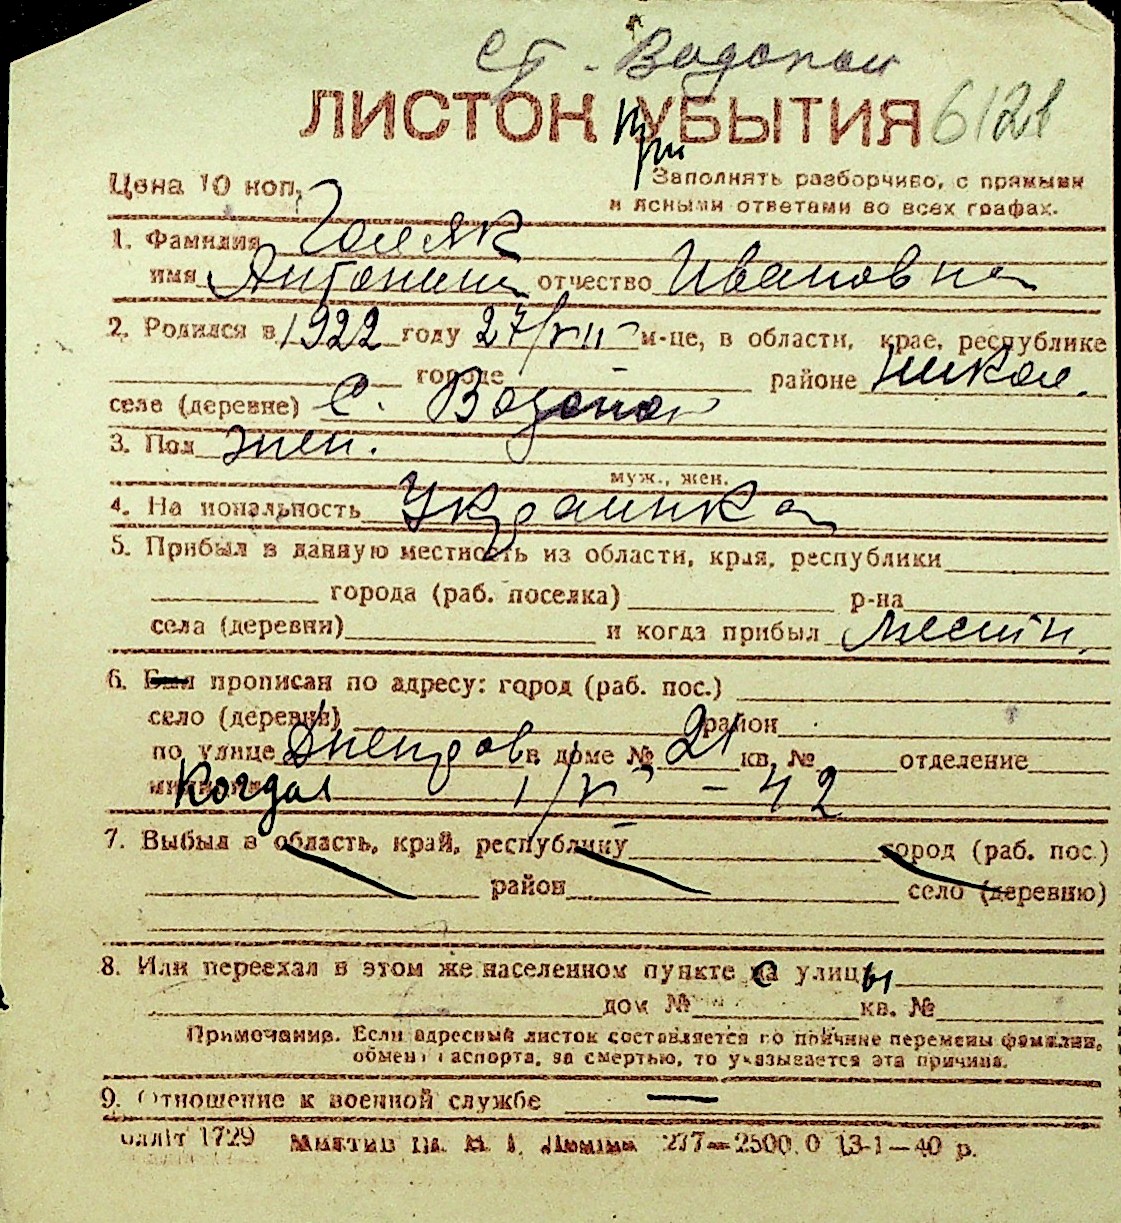 ст. Водопой
ЛИСТОК УБЫТИЯ 6128
При
Цена 10 коп.
Заполнять разборчиво, с прямыми
и ясными ответами во всех графах.
1. Фамилия Голяк
имя Антонина отчество Ивановна
2. Родился в 1922 году 27/VII м-це, в области, крае, республике
городе районе Никол.
селе (деревне) с. Водопой
3. Пол жен.
муж., жен.
4. Национальность Украинка
5. Прибыл в данную местность из области, края, республики
города (раб. поселка) р-на
села (деревни) и когда прибыл местн.
6. Был прописан по адресу: город (раб. пос.)
село (деревня) район
по улице в доме № 21 кв. № отделение
милиции Когда 42
7. Выбыл в область, край, республику город (раб. пос.)
район село (деревню)
8. Или переехал в этом же населенном пункте с улицы
дом № кв. №
Примечание. Если адресный листок составляется по причине перемены фамилии,
обмена паспорта, за смертью, то указывается эта причина.
9. Отношение к военной службе —
1729 277—2500.0 13-1—40 р.